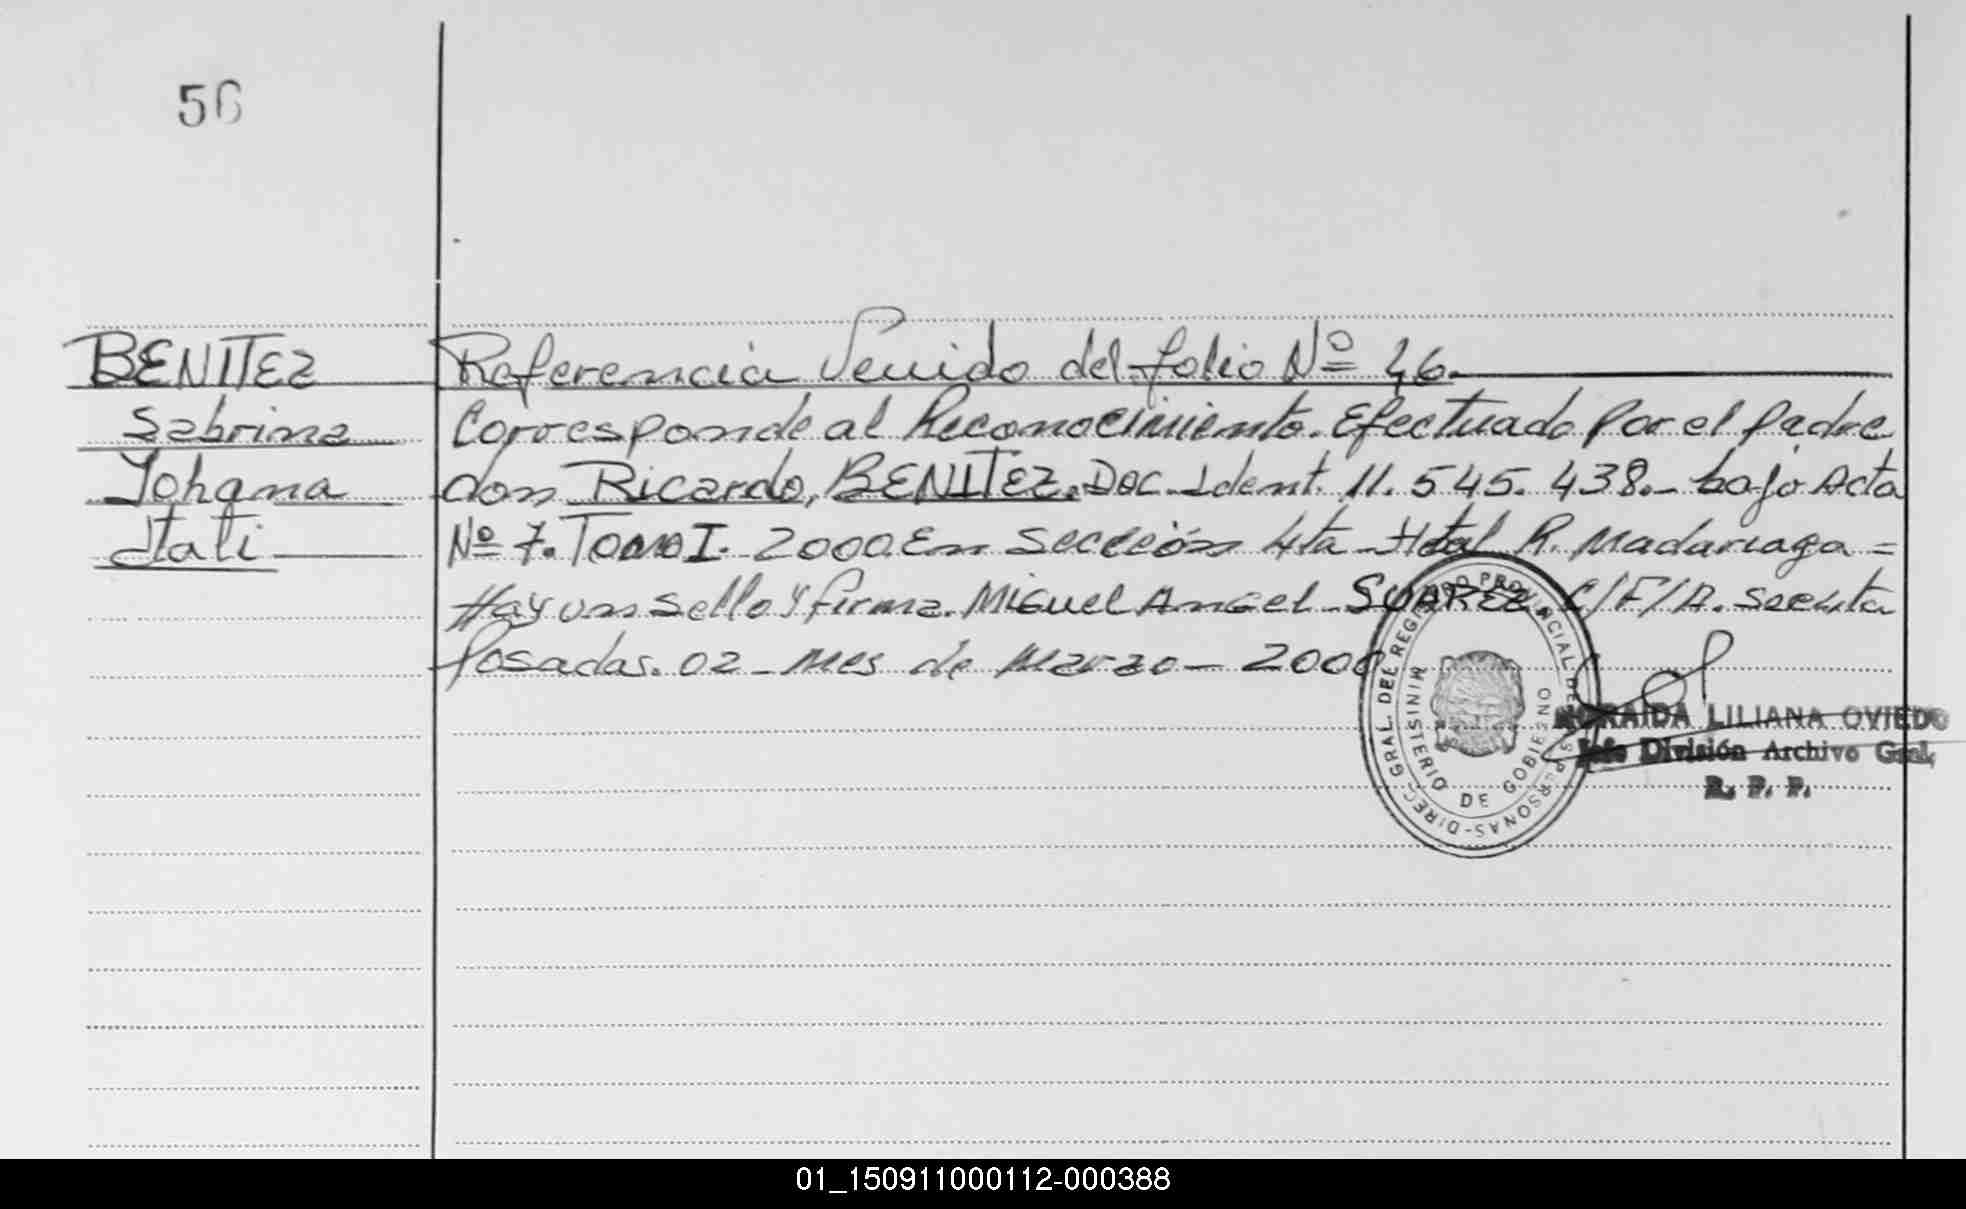 56
BENITEZ
Sabrina
Yohana
Itati
Referencia Venido del folio Nº 46.
Corresponde al Reconocimiento. Efectuado Por el Padre
don Ricardo, BENITEZ. Doc. Ident. 11.545.438.- bajo Acta
Nº 7. Tomo I. 2000. En Sección 4ta Hptal R. Madariaga =
Hay un Sello y firma. Miguel Angel SUAREZ. C/F/A. Sec 4ta
Posadas. 02 - Mes de Marzo - 2000
DIREC. GRAL. DEL REGISTRO PROVINCIAL DE LAS PERSONAS-
MINISTERIO DE GOBIERNO
LILIANA OVIEDO
Jefe División Archivo Gral.
R. P. P.
01_150911000112-000388